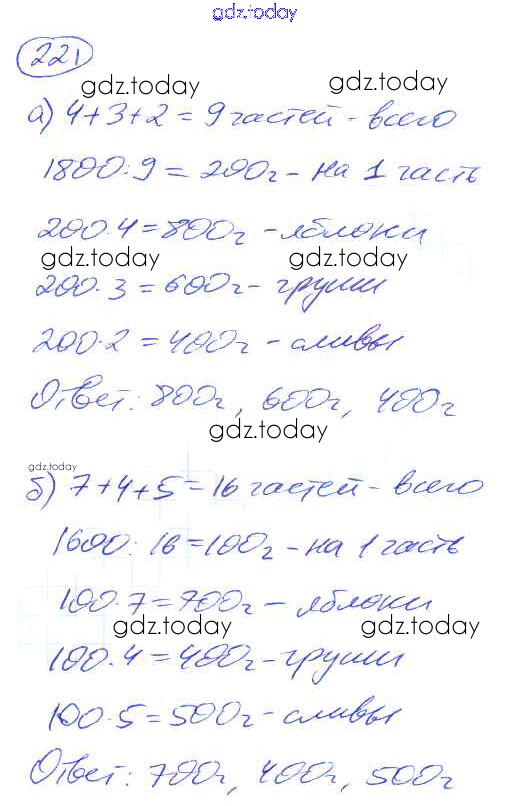 gdz.today
221
gdz.today gdz.today
а) 4+3+2 = 9 частей - всего
1800:9 = 200г - на 1 часть
200·4=800г - яблоки
gdz.today gdz.today
200·3 = 600г - груши
200·2 = 400г - сливы
Ответ: 800г, 600г, 400г
gdz.today
gdz.today
б) 7+4+5=16 частей - всего
1600:16=100г - на 1 часть
100·7=700г - яблоки
gdz.today gdz.today
100·4=400г - груши
100·5=500г - сливы
Ответ: 700г, 400г, 500г